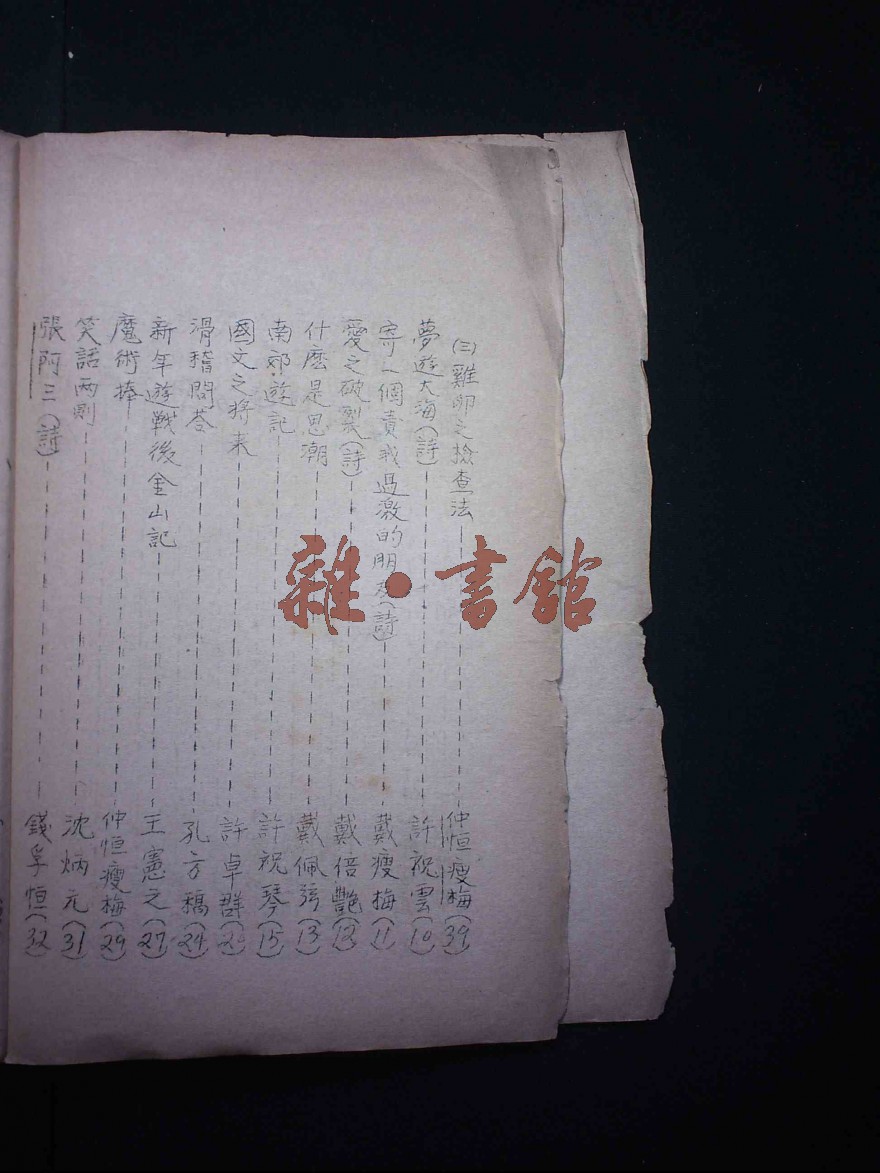 (三)雞卵之檢查法 仲恒瘦梅(39)
夢遊大海(詩) 許祝雲(10)
寄一個責我過激的朋友(詩) 戴瘦梅(11)
愛之破裂(詩) 戴倍艷(12)
什麽是思潮 戴佩弦(13)
南郊遊記 許祝琴(15)
國文之將来 許卓群
滑稽問荅 孔方稿(24)
新年遊戰後金山記 王憲之(27)
魔術捧 仲恒瘦梅(29)
笑話兩則 沈炳元(31)
張阿三(詩) 錢孚恒(32)
雜·書館